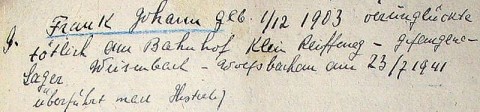 9. Frank Johann geb. 1/12 1903 verunglückte
tötlich am Bahnhof Klein Reiffling – gefangenen-
lager Weisenbach – am 23/7 1941
überführt nach